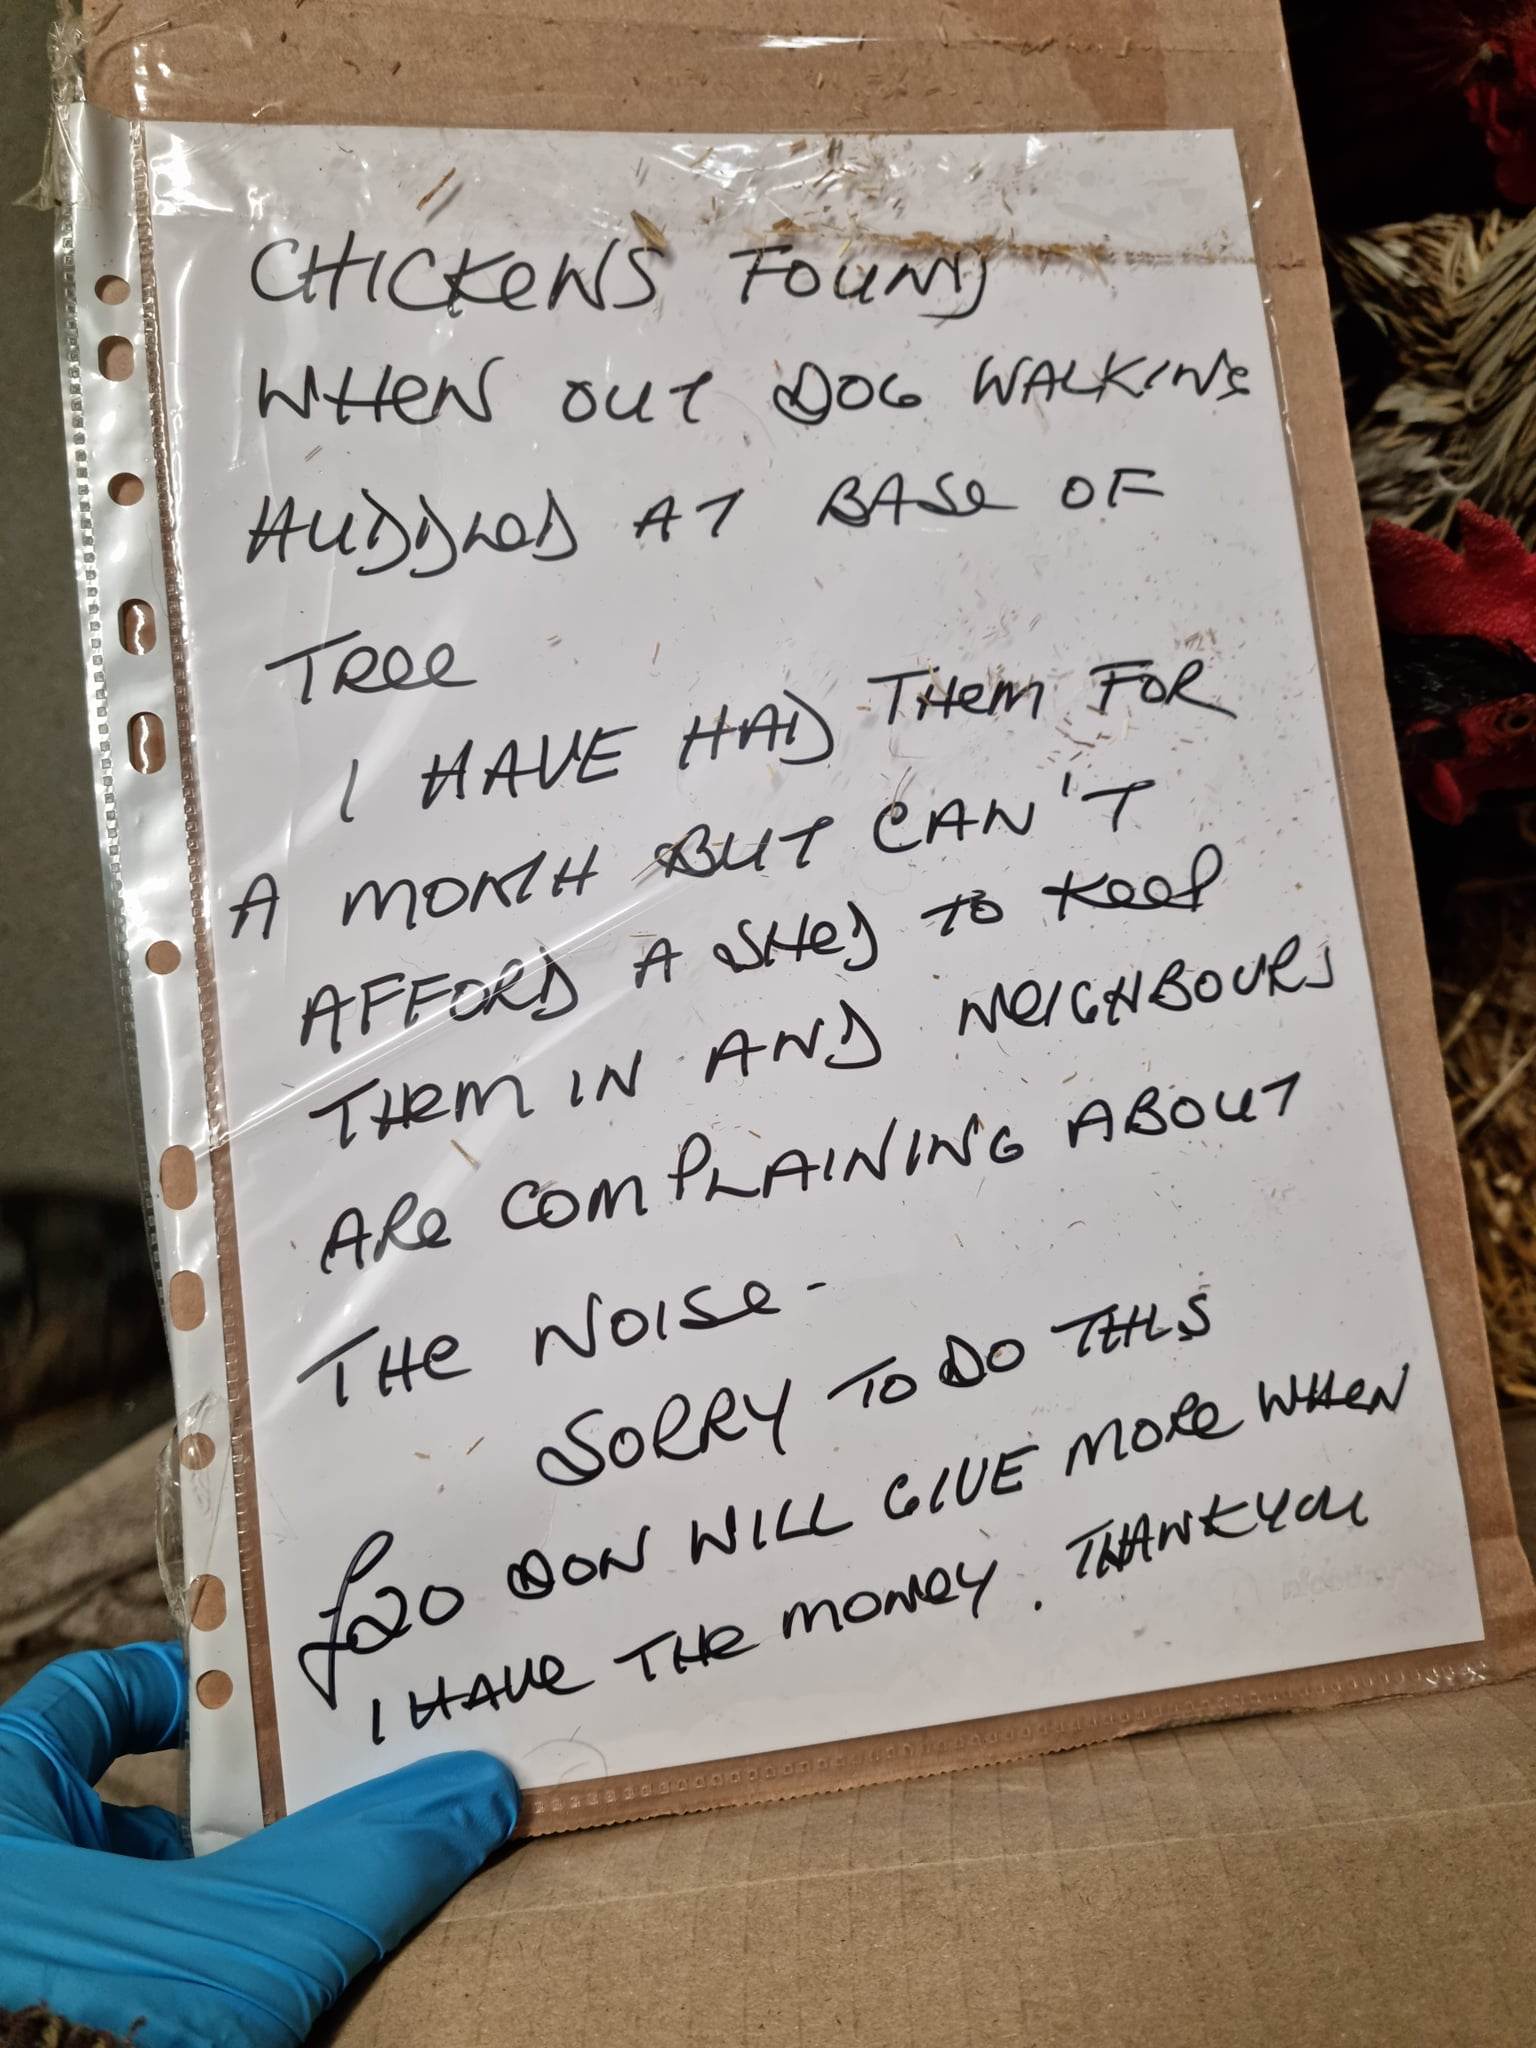 CHICKENS FOUND
WHEN OUT DOG WALKING
HUDDLED AT BASE OF
TREE
I HAVE HAD THEM FOR
A MONTH BUT CAN'T
AFFORD A SHED TO KEEP
THEM IN AND NEIGHBOURS
ARE COMPLAINING ABOUT
THE NOISE-
SORRY TO DO THIS
£20 DON WILL GIVE MORE WHEN
I HAVE THE MONEY. THANKYOU